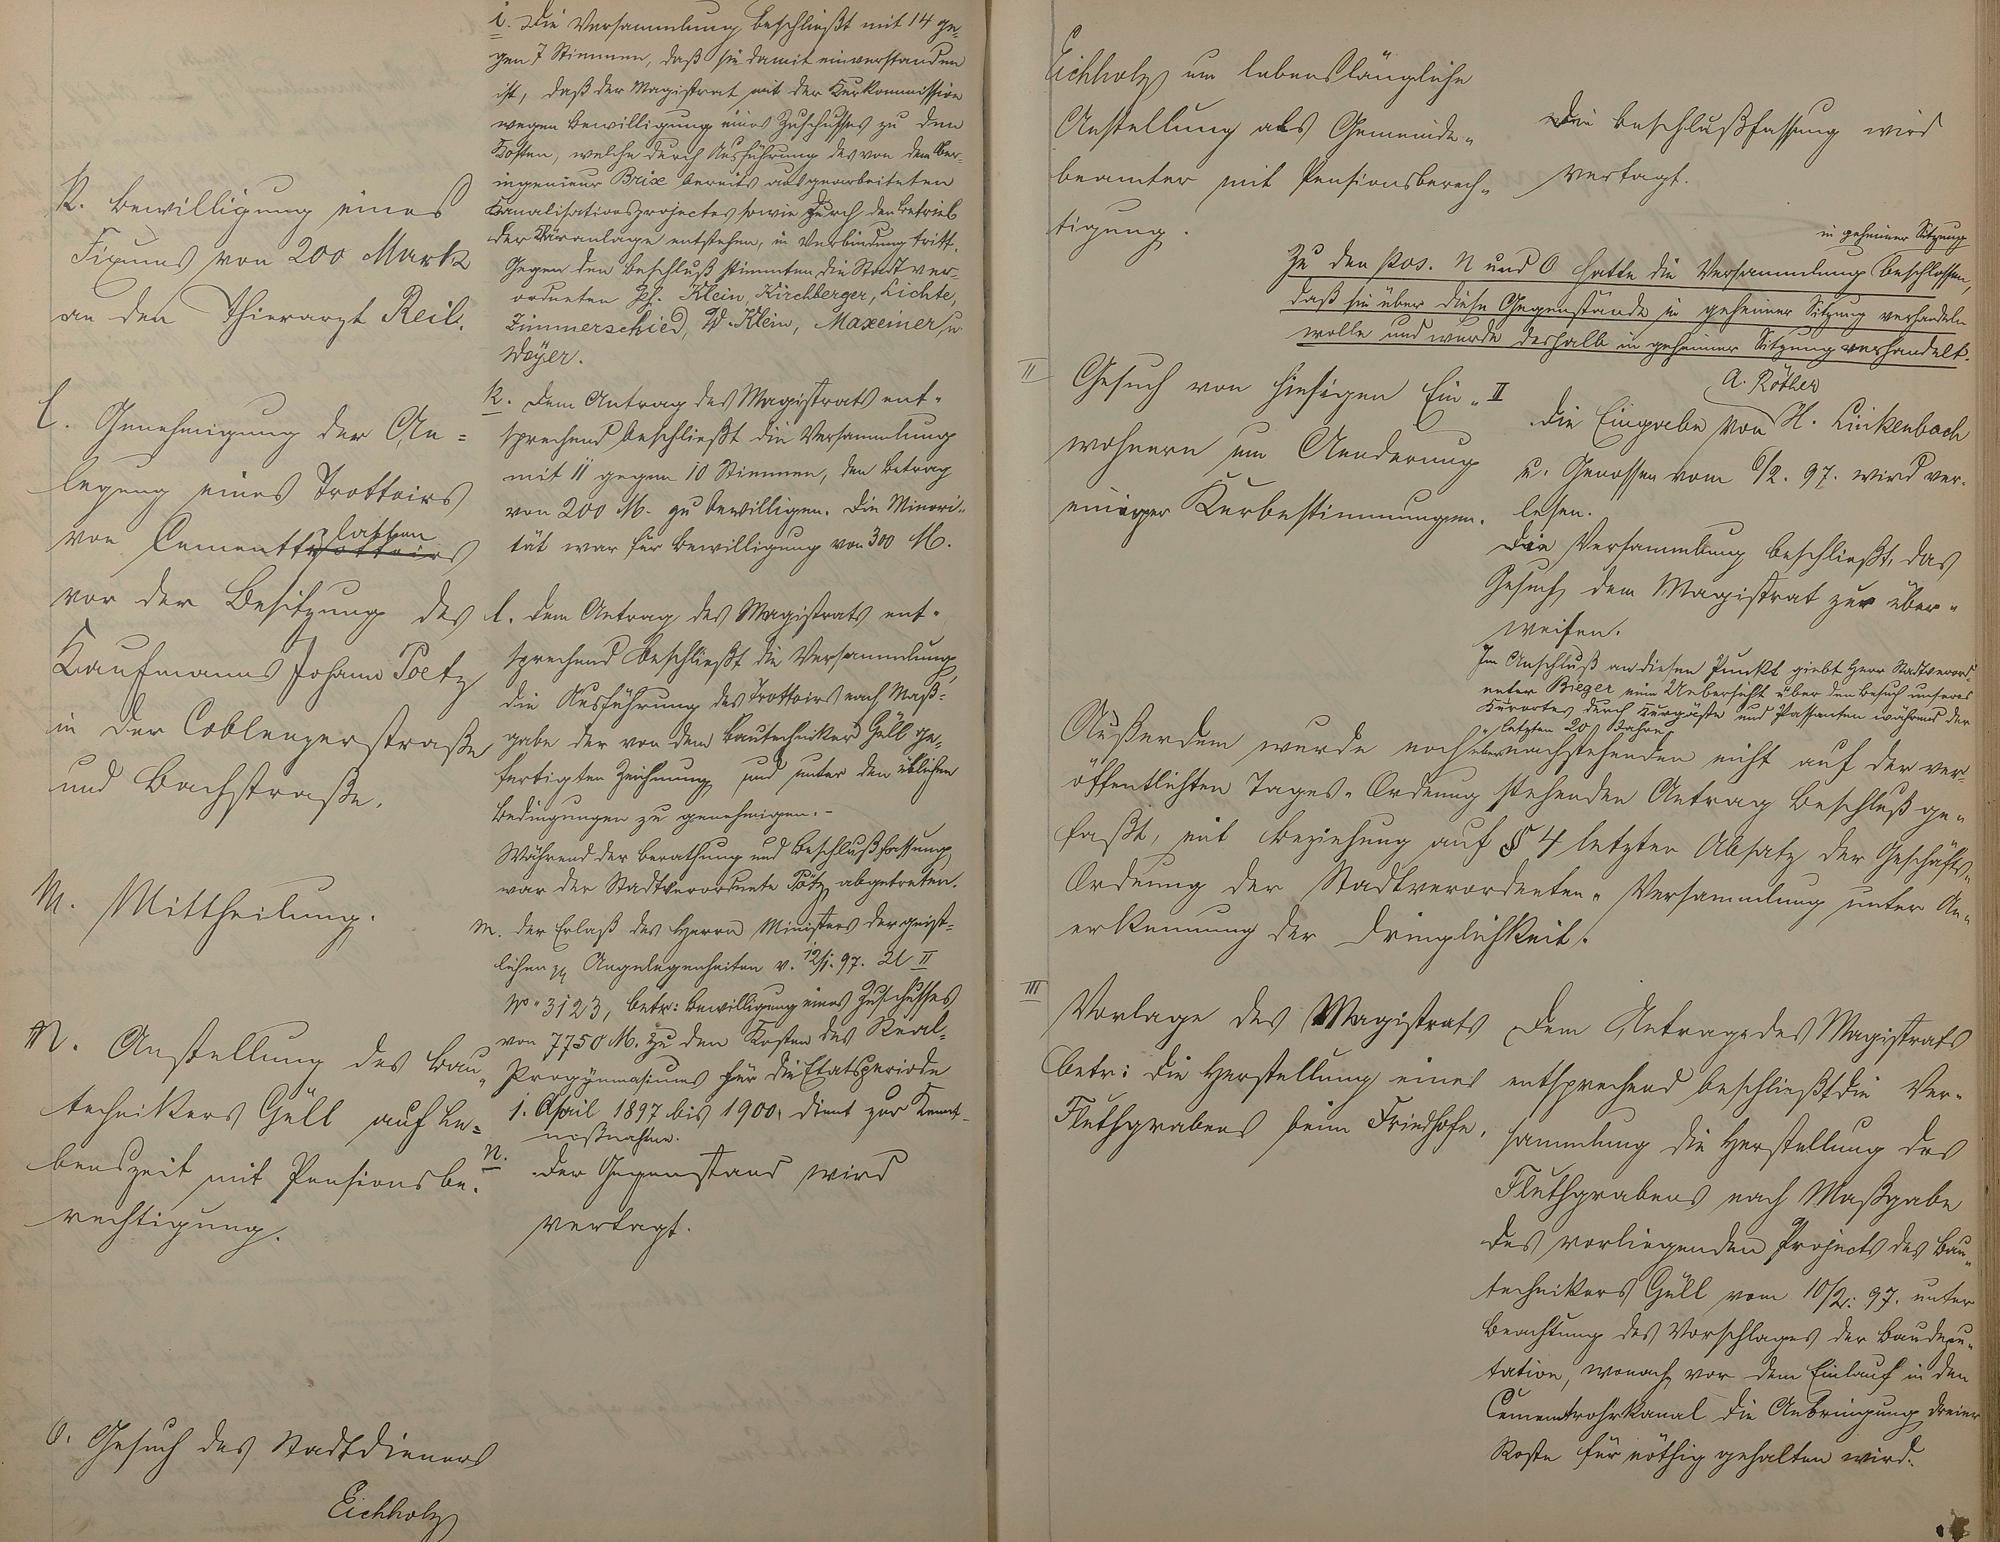 i. Die Versammlung beschließt mit 14 ge-
gen 7 Stimmen, daß sie damit einverstanden
ist, daß der Magistrat mit der Kurkommission
wegen Bewilligung eines Zuschusses zu den
Kosten, welche durch Ausführung des von dem Ober-
ingenieur Brix bereits ausgearbeiteten
Kanalisationsprojectes sowie durch den Betrieb
der Kläranlage entstehen, in Verbindung tritt.
Gegen den Beschluß stimmten die Stadtver-
ordneten Jos. Klein, Kirchberger, Lichte,
Zimmerschied, W. Klein, Maxeiner u
Doÿer.
k. Bewilligung eines
Fixums von 200 Mark
an den Thierarzt Reil.
k. Dem Antrag des Magistrats ent-
sprechend beschließt die Versammlung
mit 11 gegen 10 Stimmen, den Betrag
von 200 M. zu bewilligen. Die Minori-
tät war für Bewilligung von 300 M.
l. Genehmigung der An=
legung eines Trottoirs
von Cementplatten
vor der Besitzung des
Kaufmanns Johann Poetz
in der Coblenzerstraße
und Bachstraße.
l. Dem Antrag des Magistrats ent-
sprechend beschließt die Versammlung,
die Ausführung des Trottoirs nach Maß-
gabe der von dem Bautechniker Güll ge-
fertigten Zeichnung und unter den üblichen
Bedingungen zu genehmigen. -
Während der Berathung und Beschlußfassung
war der Stadtverordnete Pötz abgetreten.
M. Mittheilung.
m. Der Erlaß des Herrn Ministers der geist-
lichen pp Angelegenheiten v. 12/1. 97. U II
No. 3123, betr: Bewilligung eines Zuschusses
von 7750 M. zu den Kosten des Real-
Progÿmnasiums für die Etatsperiode
1. April 1897 bis 1900, dient zur Kennt-
nißnahme.
N. Anstellung des Bau-
technikers Güll auf Le-
benszeit mit Pensionsbe-
rechtigung.
N.
Der Gegenstand wird
vertagt.
O. Gesuch des Stadtdieners
Eichholz
Eichholz um lebenslängliche
Anstellung als Gemeinde-
beamter mit Pensionsberech-
tigung.
Die Beschlußfassung wird
vertagt.
in geheimer Sitzung
Zu den Pos. N und O hatte die Versammlung beschlossen,
daß sie über diese Gegenstände in geheimer Sitzung verhandeln
wolle und wurde deshalb in geheimer Sitzung verhandelt.
II Gesuch von hiesigen Ein-
wohnern um Aenderung
einiger Kurbestimmungen.
II
A. Röther
Die Eingabe von H. Linkenbach
u. Genossen vom 6/2. 97. wird ver-
lesen.
Die Versammlung beschließt, das
Gesuch dem Magistrat zur über-
weisen.
Im Anschluß an diesen Punkt giebt Herr Stadtverord-
neter Bieger eine Uebersicht über den Besuch unseres
Kurortes durch Kurgäste und Passanten während der
letzten 20 Jahre.
Außerdem wurde noch über nachstehenden nicht auf der ver-
öffentlichten Tages-Ordnung stehenden Antrag Beschluß ge-
faßt, mit Beziehung auf § 4 letzter Absatz der Geschäfts-
Ordnung der Stadtverordneten-Versammlung unter An-
erkennung der Dringlichkeit.
III Vorlage des Magistrats
betr: die Herstellung eines
Fluthgrabens beim Friedhofe.
Dem Antrage des Magistrats
entsprechend beschließt die Ver-
sammlung die Herstellung des
Fluthgrabens nach Maßgabe
des vorliegenden Projects des Bau-
technikers Güll vom 10/2. 97. unter
Beachtung des Vorschlages der Baudepu-
tation, wonach vor dem Einlauf in den
Cementrohrkanal die Anbringung dreier
Roste für nöthig gehalten wird.